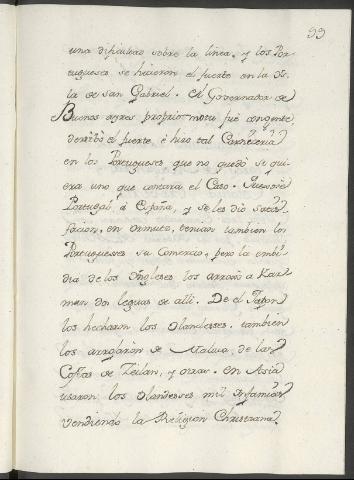 99
una dificultad sobre la linea, y los Por-
tugueses se hicieron el fuerte en la Is-
la de san Gabriel. El Governador de
Buenos ayres proprio motu fué con gente
derribó el fuerte, é hizo tal Carniceria
en los Portugueses que no quedó si qui-
era uno que contara el Caso. Quexose
Portugal á España, y se les dio satis-
facion, en Ormuts, tenian tambien los
Portuguesses su Comercio, pero la embi-
dia de los Yngleses los arrojó a Kar-
men dos leguas de alli. De el Japon
los hecharon los Olandesses, tambien
los arrojaron de Malaca, de las
Costas de Zeilan, y otras. en Asia
usaron los Olandesses mil Infamias
vendiendo la Religion Christiana.